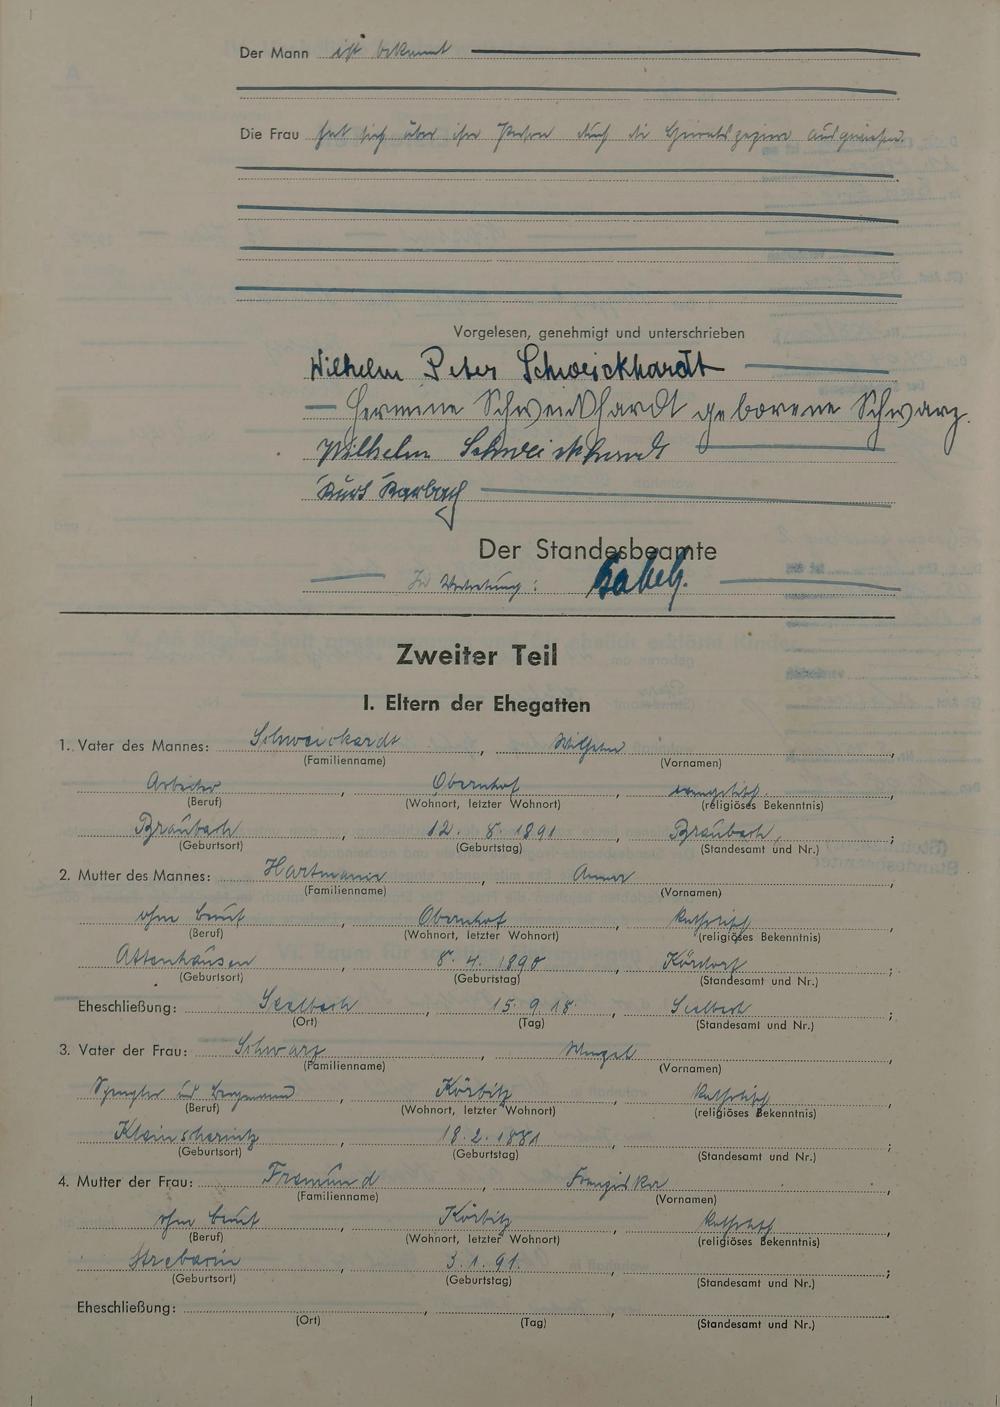 Der Mann ist bekannt
Die Frau hat sich über ihre Person durch die ausgewiesen.
Vorgelesen, genehmigt und unterschrieben
Wilhelm Peter Schweickhardt
Hermine Schweickhardt geborene Schwarz.
Wilhelm Schweickhardt
Kurt Karbach
Der Standesbeamte
In Vertretung:
Zweiter Teil
I. Eltern der Ehegatten
1. Vater des Mannes: Schweickardt, Wilhelm,
(Familienname) (Vornamen)
Arbeiter, Obernhof, evangelisch,
(Beruf) (Wohnort, letzter Wohnort) (religiöses Bekenntnis)
Braubach, 12. 8. 1891, Braubach,;
(Geburtsort) (Geburtstag) (Standesamt und Nr.)
2. Mutter des Mannes: Hartmann, Anna,
(Familienname) (Vornamen)
ohne Beruf, Obernhof, katholisch,
(Beruf) (Wohnort, letzter Wohnort) (religiöses Bekenntnis)
Attenhausen, 8. 4. 1890, Kördorf;
(Geburtsort) (Geburtstag) (Standesamt und Nr.)
Eheschließung: Seelbach, 15. 9. 18., Seelbach;
(Ort) (Tag) (Standesamt und Nr.)
3. Vater der Frau: Schwarz, Wenzel,
(Familienname) (Vornamen)
Spengler und Bergmann, Körbitz, katholisch,
(Beruf) (Wohnort, letzter Wohnort) (religiöses Bekenntnis)
18. 2. 1881,;
(Geburtsort) (Geburtstag) (Standesamt und Nr.)
4. Mutter der Frau:, Franziska,
(Familienname) (Vornamen)
ohne Beruf, Körbitz, katholisch,
(Beruf) (Wohnort, letzter Wohnort) (religiöses Bekenntnis)
3. 1. 91.,;
(Geburtsort) (Geburtstag) (Standesamt und Nr.)
Eheschließung:,,.
(Ort) (Tag) (Standesamt und Nr.)